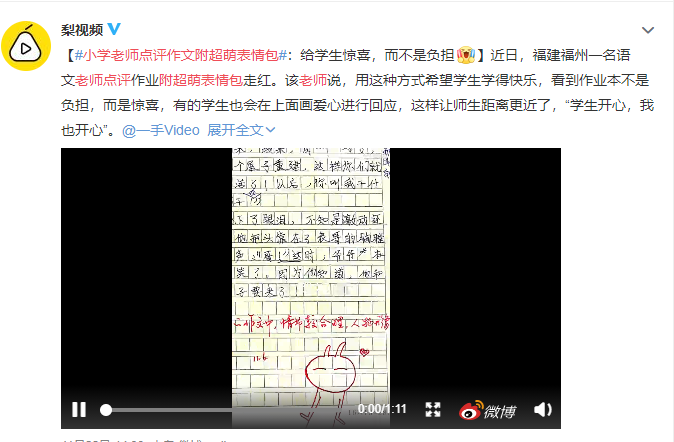 梨视频
【#小学老师点评作文附超萌表情包#：给学生惊喜，而不是负担】近日，福建福州一名语
文老师点评作业附超萌表情包走红。该老师说，用这种方式希望学生学得快乐，看到作业本不是
负担，而是惊喜，有的学生也会在上面画爱心进行回应，这样让师生距离更近了，“学生开心，我
也开心”。@一手Video 展开全文
下了眼泪，不知是激动还
笑了。因为他知道，他和
作文中，情节较合理，人物
0:00/1:11
微博